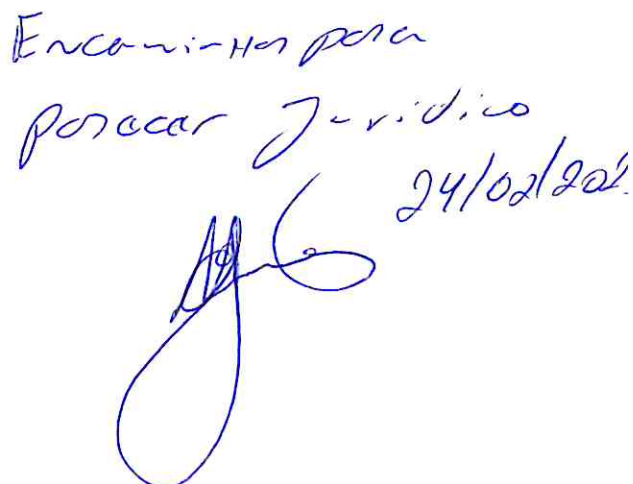 Encaminhar para
parecer Jurídico
24/02/202